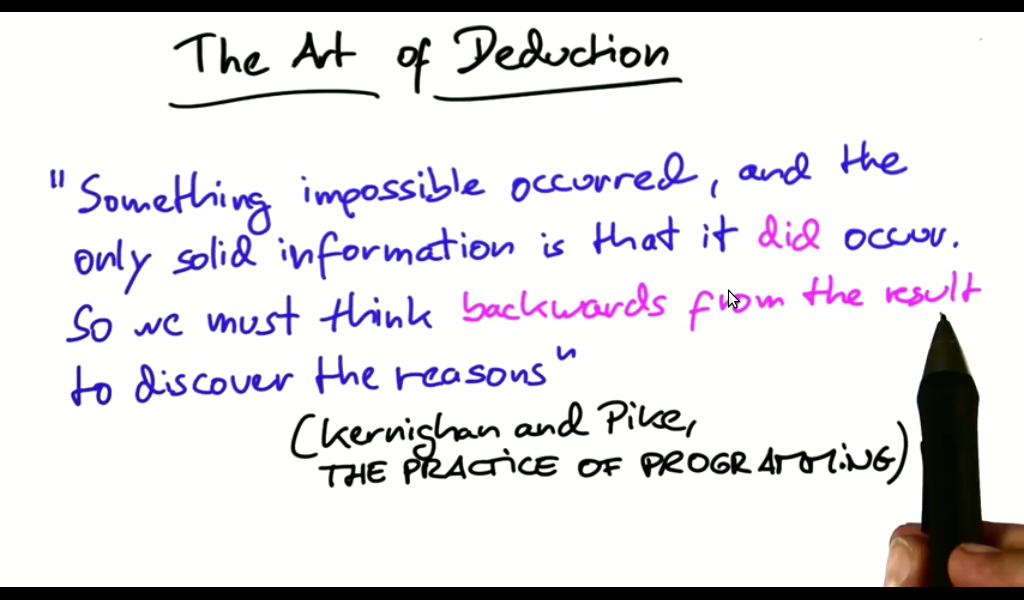 The Art of Deduction
"Something impossible occurred, and the
only solid information is that it did occur.
So we must think backwards from the result
to discover the reasons"
(Kernighan and Pike,
THE PRACTICE OF PROGRAMMING)